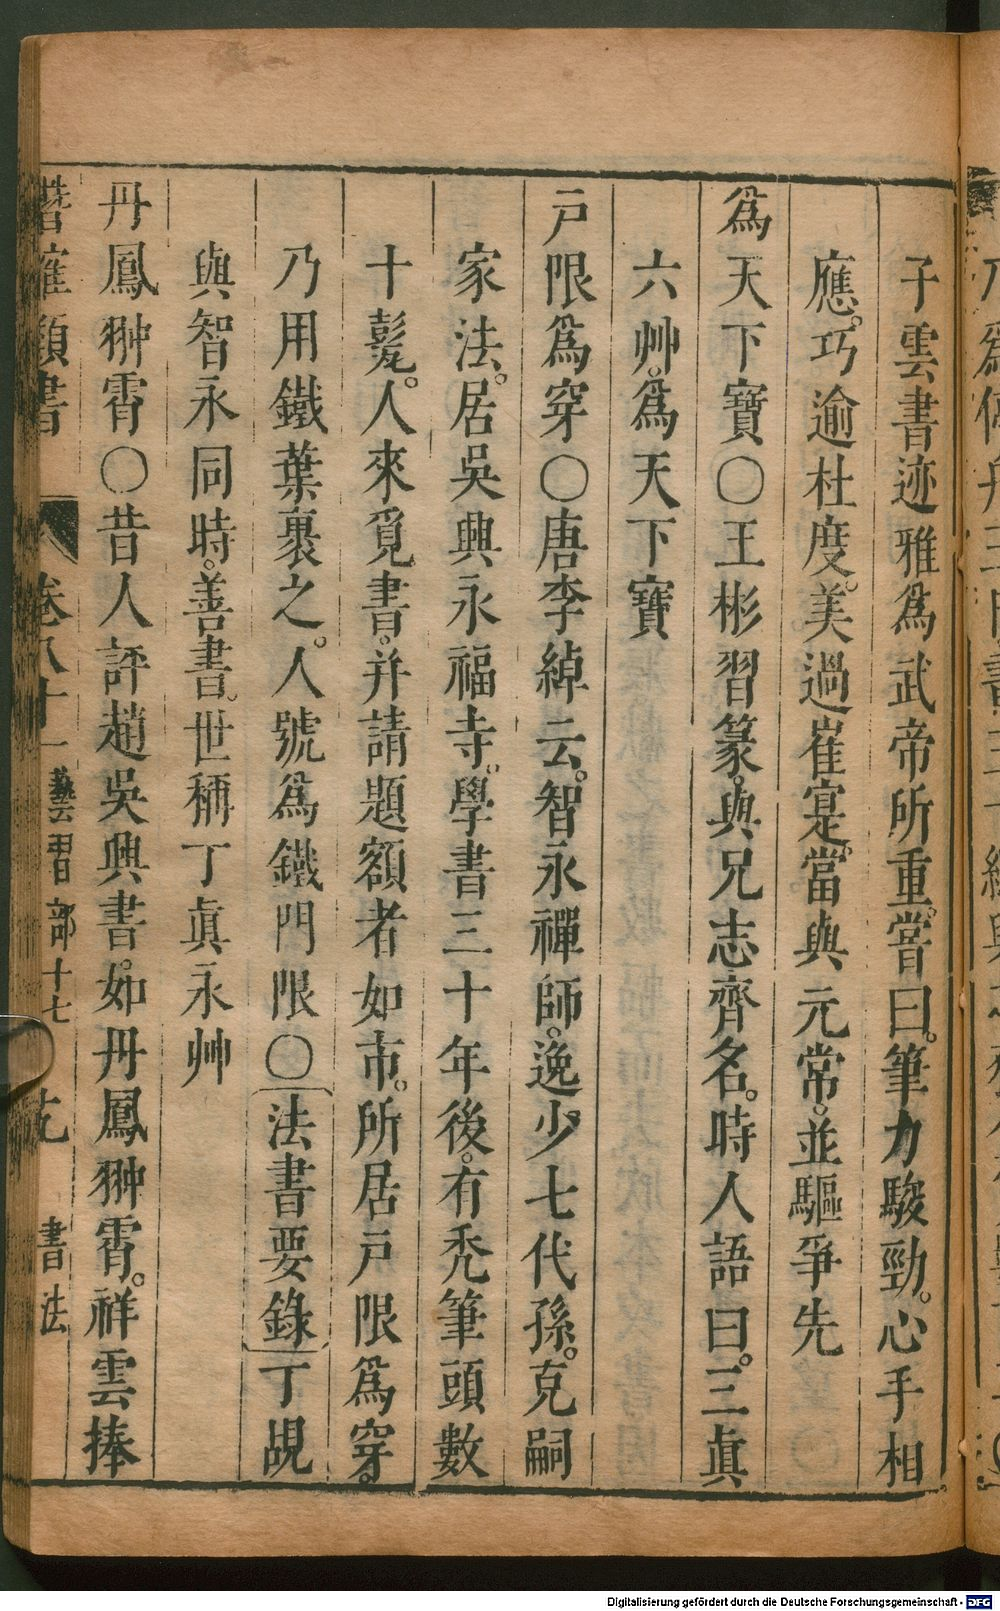 子雲書迹雅爲武帝所重。嘗曰。筆力駿勁。心手相
應。巧逾杜度。美過崔寔。當與元常。並驅爭先
爲天下寶○王彬習篆。與兄志齊名。時人語曰。三眞
六艸。爲天下寶
戸限爲穿○唐李綽云。智永禪師。逸少七代孫。克嗣
家法。居吳興永福寺。學書三十年後。有禿筆頭數
十甏。人來覓書。并請題額者如市。所居戸限爲穿。
乃用鐵葉裹之。人號爲鐵門限○法書要錄丁覘
與智永同時。善書。世稱丁眞永艸
丹鳳翀霄○昔人評趙吳興書。如丹鳳翀霄。祥雲捧
潛確類書 卷八十一 藝習部十七 書法
Digitalisierung gefördert durch die Deutsche Forschungsgemeinschaft - DFG